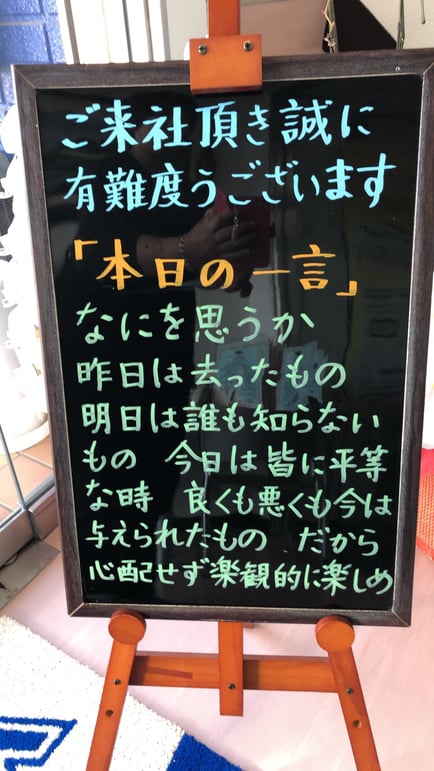 ご来社頂き誠に
有難度うございます
「本日の一言」
なにを思うか
昨日は去ったもの
明日は誰も知らない
もの 今日は皆に平等
な時 良くも悪くも今は
与えられたもの だから
心配せず楽観的に楽しめ